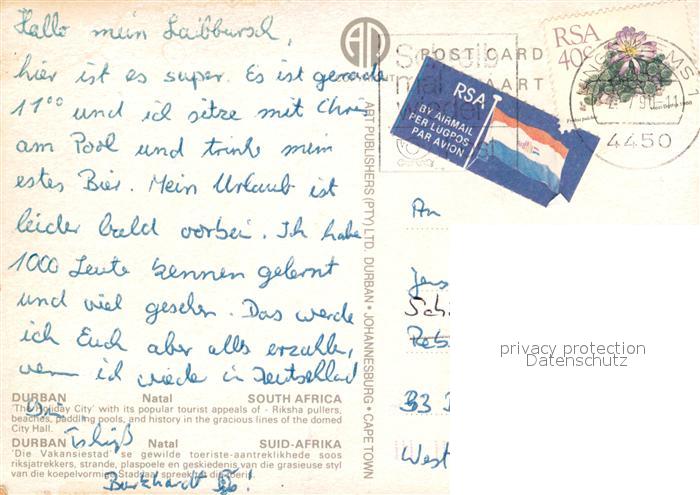 Hallo mein Laibbursch,
hier ist es super. Es ist gerade
11⁰⁰ und ich sitze mit Chris
am Pool und trinke mein
estes Bier. Mein Urlaub ist
leider bald vorbei. Ich habe
1000 Leute kennen gelernt
und viel gesehen. Das werde
ich Euch aber alles erzahlen,
wenn ich wieder in Deutschland
bin.
Tschüß
Burkhardt
DURBAN Natal SOUTH AFRICA
'The Holiday City' with its popular tourist appeals of - Riksha pullers,
beaches, paddling pools, and history in the gracious lines of the domed
City Hall.
DURBAN Natal SUID-AFRIKA
'Die Vakansiestad' se gewilde toeriste-aantreklikhede soos
riksjatrekkers, strande, plaspoele en geskiedenis van die grasieuse styl
van die koepelvormige Stadsaal spreek tot die toeris.
ART PUBLISHERS (PTY) LTD. DURBAN • JOHANNESBURG • CAPE TOWN
POST CARD
Schreib
mal
wieder
RSA
BY AIRMAIL
PER LUGPOS
PAR AVION
RSA
40c
4450
An
Jens
West
privacy protection
Datenschutz